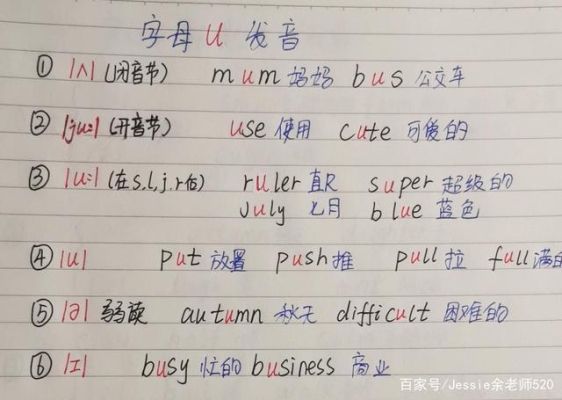 字母 u 发音
① |ʌ| (闭音节) mum 妈妈 bus 公交车
② |ju:| (开音节) use 使用 cute 可爱的
③ |u:| (在s.l,j.r后) ruler 直尺 super 超级的
July 七月 blue 蓝色
④ |u| put 放置 push 推 pull 拉 full 满的
⑤ |ə| 弱读 autumn 秋天 difficult 困难的
⑥ |I| busy 忙的 business 商业
百家号/Jessie余老师520